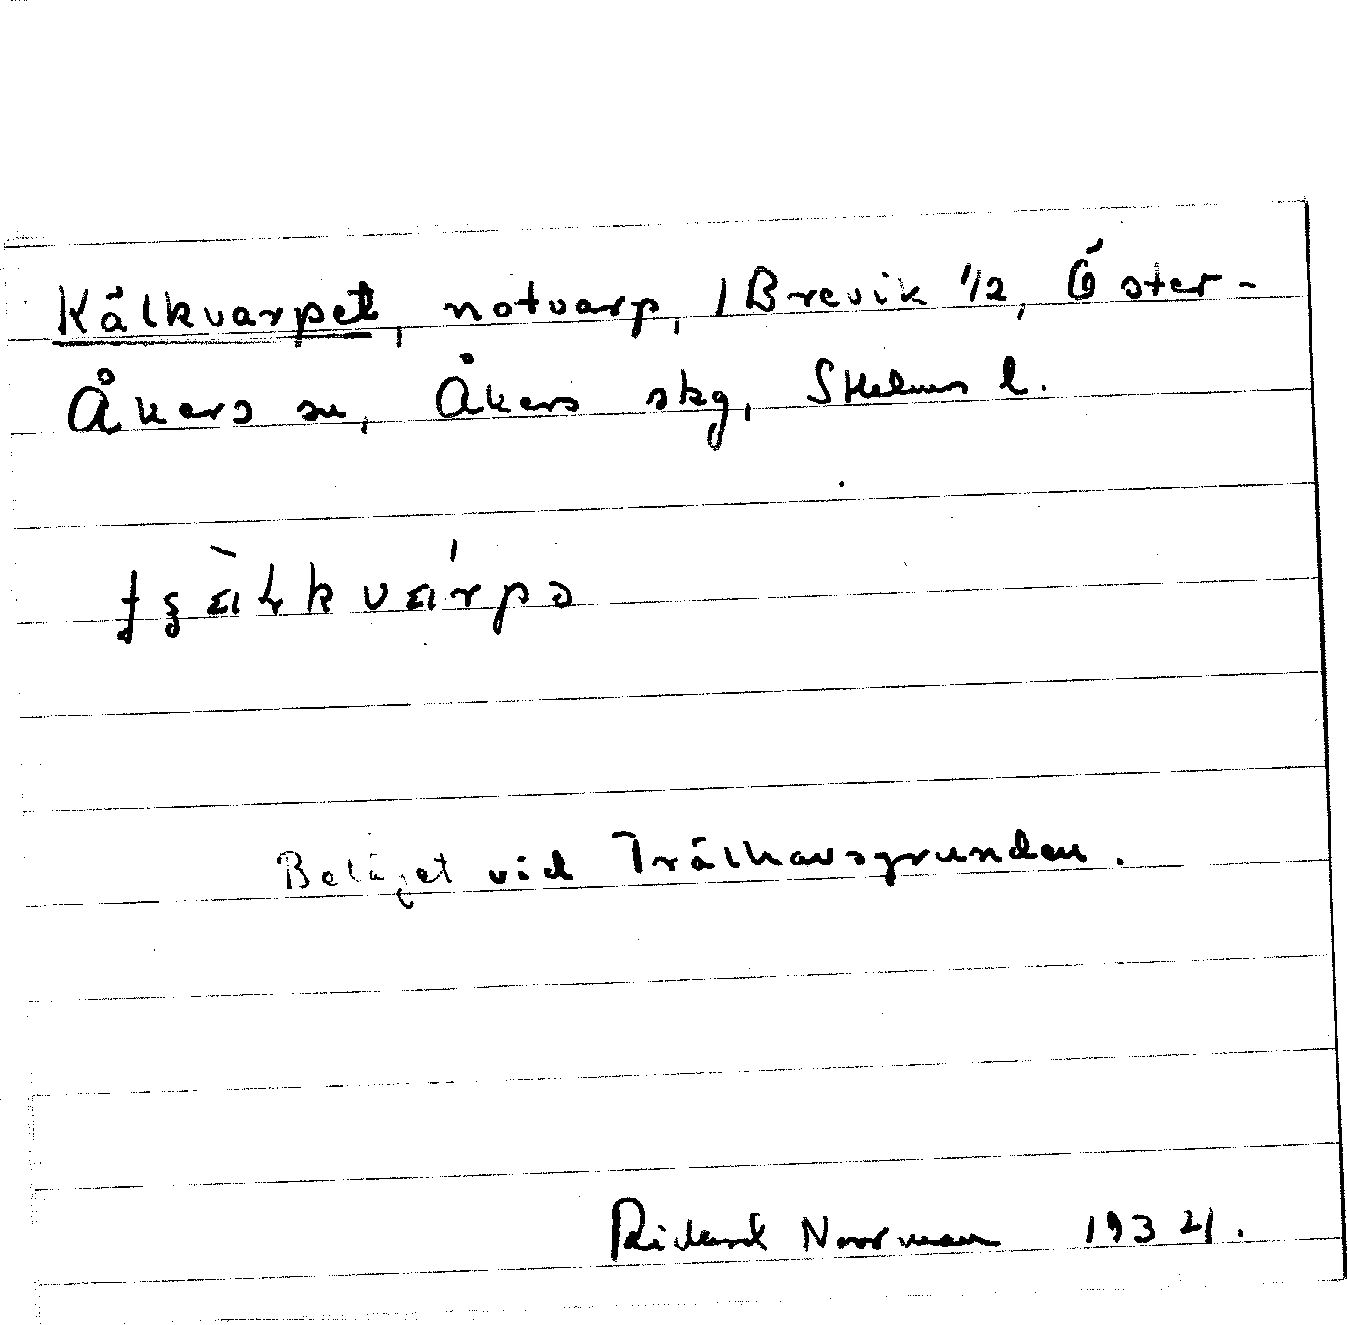 Kälkvarpet, notvarp, 1 Brevik 1/2, Öster-
Åkers sn, Åkers skg, Sthlms l.
Beläget vid Trälhavsgrunden.
Rickard Norrman 1934.